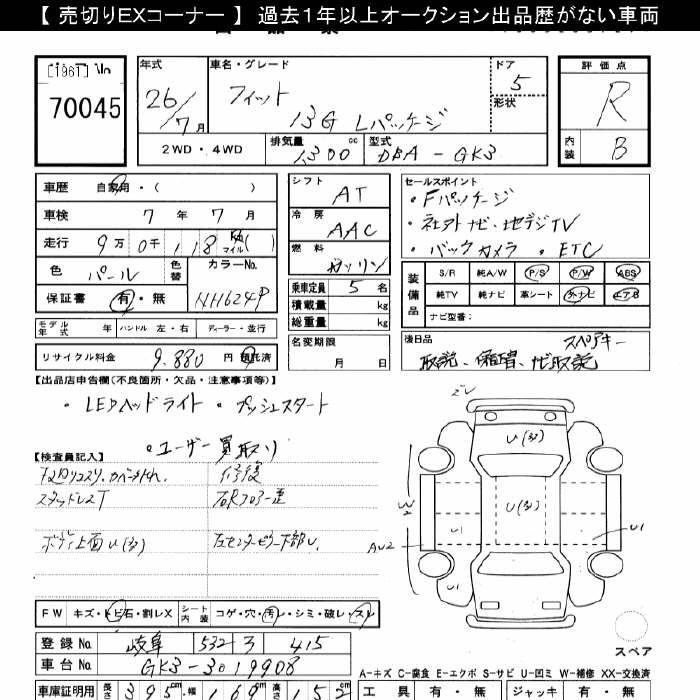 【 売切りEXコーナー 】 過去１年以上オークション出品歴がない車両
70045
年式
26/7月
車名・グレード
フィット
13G Lパッケージ
ドア
5
形状
評価点
R
内装
B
2WD・4WD
排気量
1300 cc
型式
DBA-GK3
車歴 自家用・( )
車検 7年 7月
走行 9万0千118 Km マイル ( )
色 パール
色替
カラーNo.
NH624P
保証書 有・無
モデル年式 年 ハンドル 左・右 ディーラー・並行
リサイクル料金 9.880 円 預託済
シフト AT
冷房 AAC
燃料 ガソリン
乗車定員 5名
積載量 kg
総重量 kg
名変期限
月 日
セールスポイント
・Fパッケージ
・社外ナビ・地デジTV
・バックカメラ ・ETC
装備品
S/R 純A/W P/S P/W ABS
純TV 純ナビ 革シート 外ナビ エアB
ナビ型番:
後日品
スペアキー
取説、保証書、ナビ取説
【出品店申告欄(不良箇所・欠品・注意事項等)】
・LEDヘッドライト ・プッシュスタート
・ユーザー買取り
【検査員記入】
修復
スタッドレスT
右Rフロアー歪
ボディ上面U(多)
左センターピラー下部U.
U(多)
U(多)
W2
U1
AU2
U1
FW キズ・トビ石・割レX シート内装 コゲ・穴・汚レ・シミ・破レ・スレ
登録No. 岐阜 532 3 415
車台No. GK3-3019908
スペア
A-キズ C-腐食 E-エクボ S-サビ U-凹ミ W-補修 XX-交換済
車庫証明用 長さ 395 cm 幅 169 cm 高さ 152 cm
工具 有・無 ジャッキ 有・無